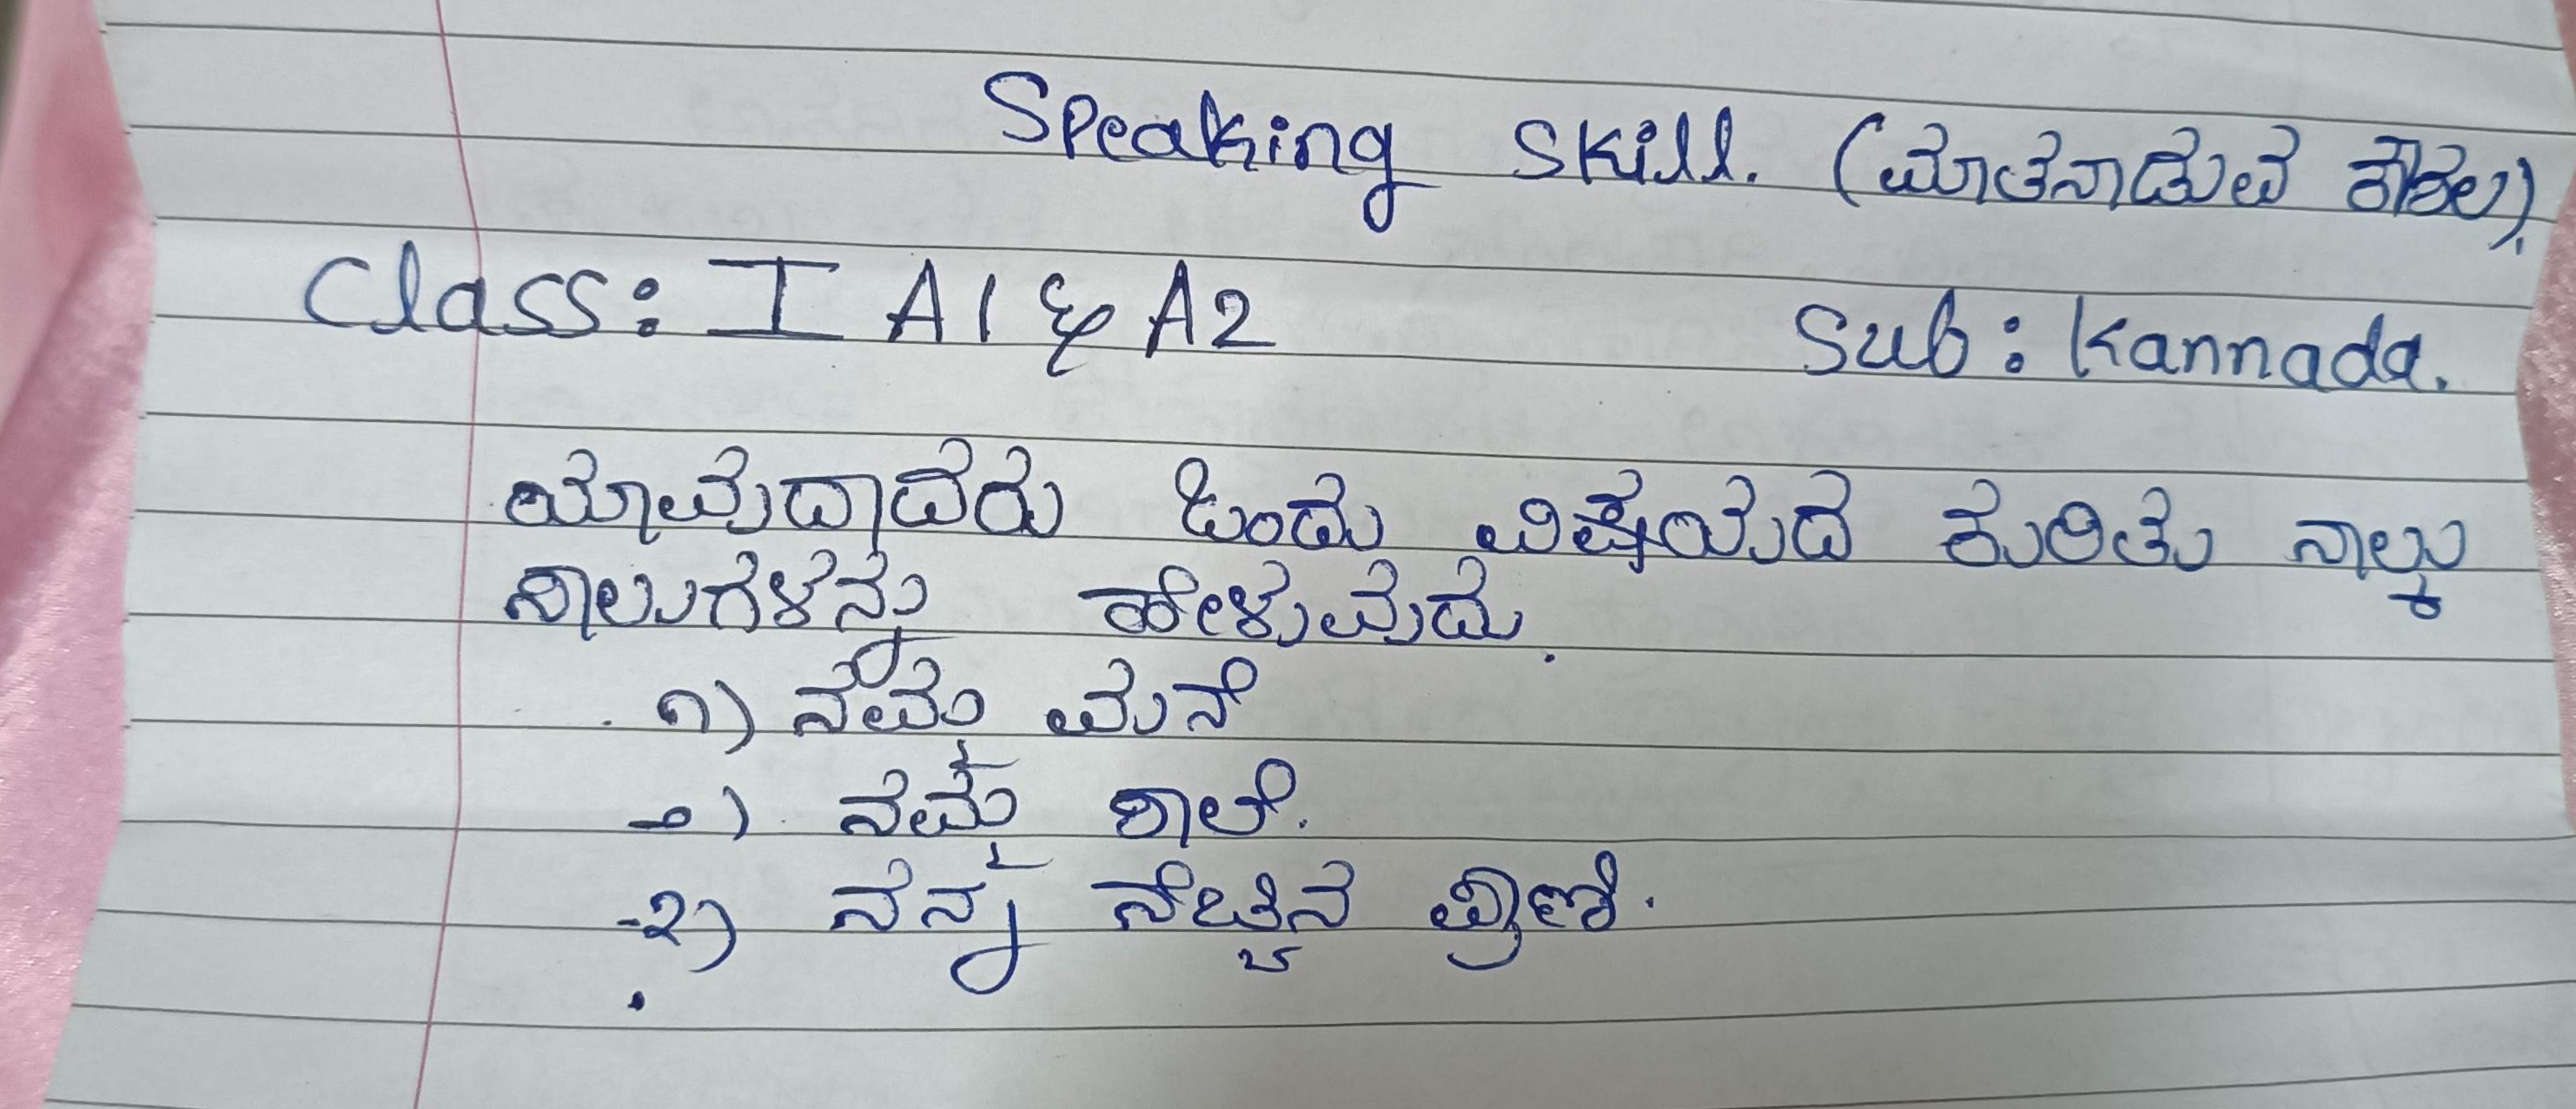 Speaking Skill. (ಮಾತನಾಡುವ ಕೌಶಲ).
Class: I A1 & A2
Sub: Kannada.
ಯಾವುದಾದರು ಒಂದು ವಿಷಯದ ಕುರಿತು ನಾಲ್ಕು
ಸಾಲುಗಳನ್ನು ಹೇಳುವುದು.
೧) ನಮ್ಮ ಮನೆ
೨) ನಮ್ಮ ಶಾಲೆ.
೩) ನನ್ನ ನೆಚ್ಚಿನ ಪ್ರಾಣಿ.